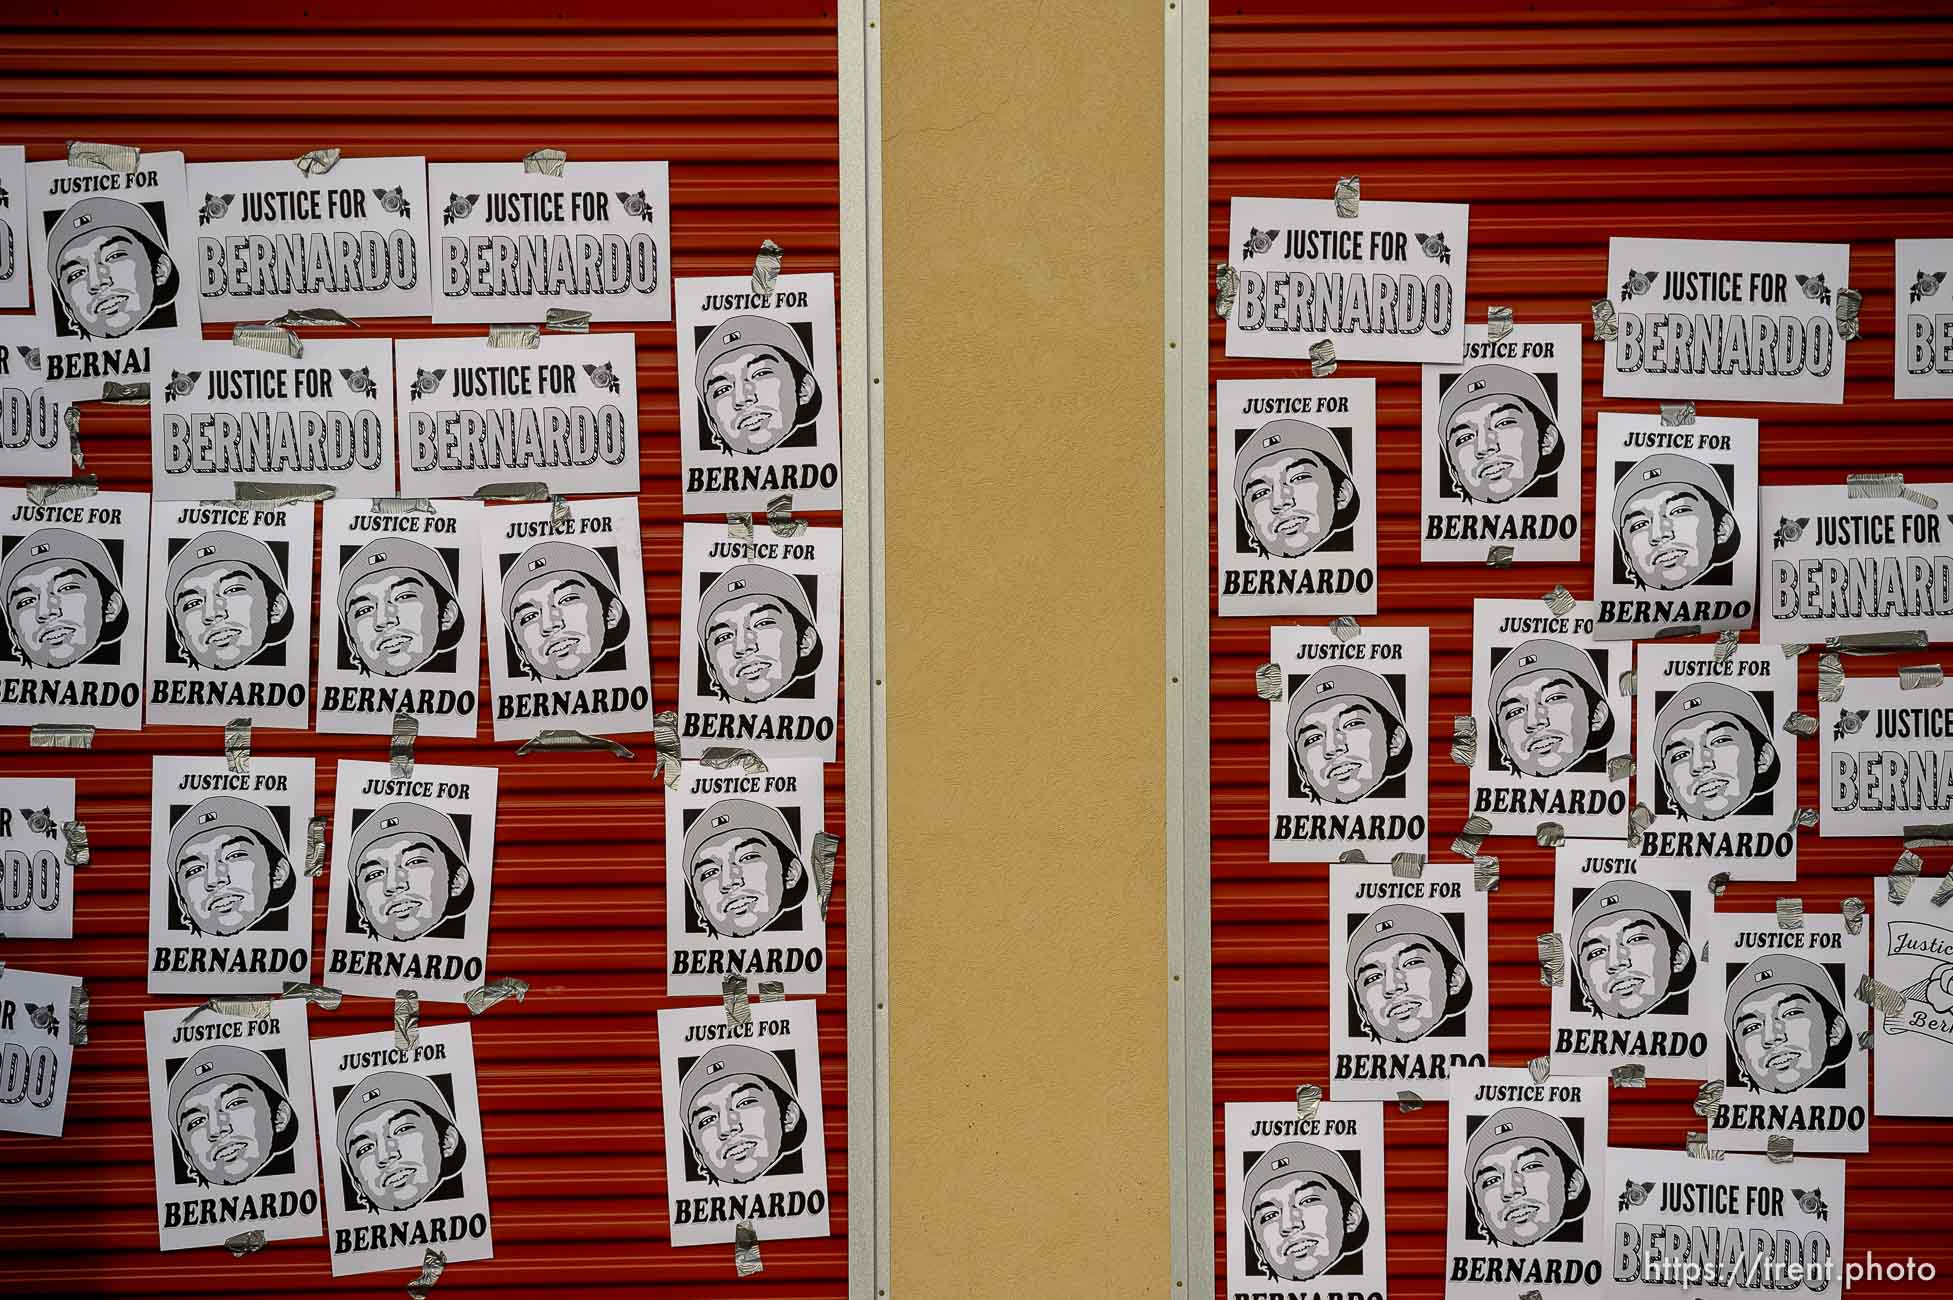 JUSTICE FOR
BERNA
JUSTICE FOR
BERNARDO
JUSTICE FOR
BERNARDO
JUSTICE FOR
BERNARDO
R
DO
JUSTICE FOR
BERNARDO
JUSTICE FOR
BERNARDO
JUSTICE FOR
BERNARDO
JUSTICE FOR
BERNARDO
JUSTICE FOR
BERNARDO
JUSTICE FOR
BERNARDO
JUSTICE FOR
BERNARDO
R
DO
JUSTICE FOR
BERNARDO
JUSTICE FOR
BERNARDO
JUSTICE FOR
BERNARDO
R
DO
JUSTICE FOR
BERNARDO
JUSTICE FOR
BERNARDO
JUSTICE FOR
BERNARDO
JUSTICE FOR
BERNARDO
USTICE FOR
BERNARDO
JUSTICE FOR
BERNARDO
BE
JUSTICE FOR
BERNARDO
JUSTICE FOR
BERNARDO
JUSTICE FOR
BERNARD
JUSTICE FOR
BERNARDO
JUSTICE FO
BERNARDO
JUSTICE FOR
BERNARDO
JUSTICE
BERNA
JUSTICE FOR
BERNARDO
JUSTIC
BERNARDO
JUSTICE FOR
BERNARDO
Justic
Bern
JUSTICE FOR
BERNARDO
JUSTICE FOR
BERNARDO
JUSTICE FOR
BERNARDO
https://trent.photo